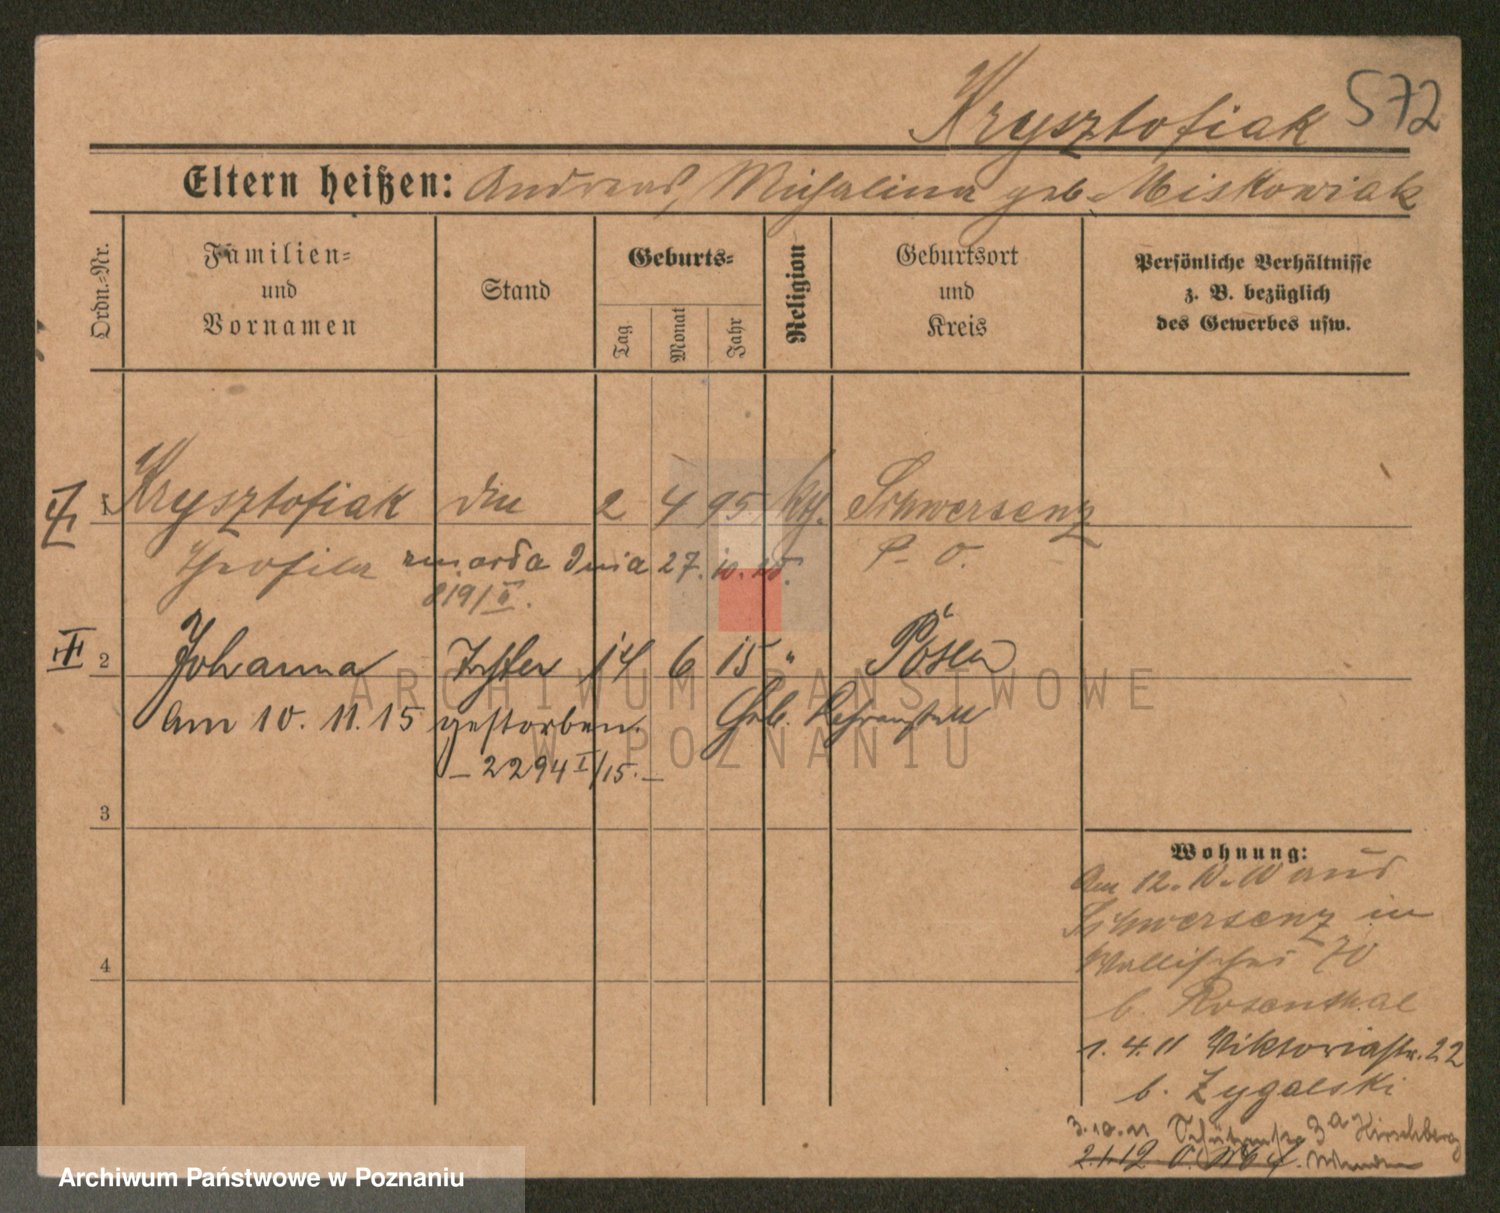 Krysztofiak 572
Eltern heißen: Andreas, Michalina geb. Miskowiak
Ordn.-Nr.
Familien-
und
Vornamen
Stand
Geburts-
Tag.
Monat
Jahr
Religion
Geburtsort
und
Kreis
Persönliche Verhältnisse
z. B. bezüglich
des Gewerbes usw.
1 Krysztofiak 2 4 95 kth. Schwersenz
Theofila dnia 27. 10. P. O.
819/II.
2 Johanna Tochter 14 6 15 " Posen
Am 10. 11. 15 gestorben. Geb.
– 2294 I/15. –
3
4
Wohnung:
Am 12. aus
Schwersenz in
Wallischei 70
b. Rosenthal
1. 4. 11 Viktoriastr. 22
b. Zygalski
3. 10. 11 Schützenstr 3a Hirschberg
2. 1. 12
ARCHIWUM PAŃSTWOWE
W POZNANIU
Archiwum Państwowe w Poznaniu